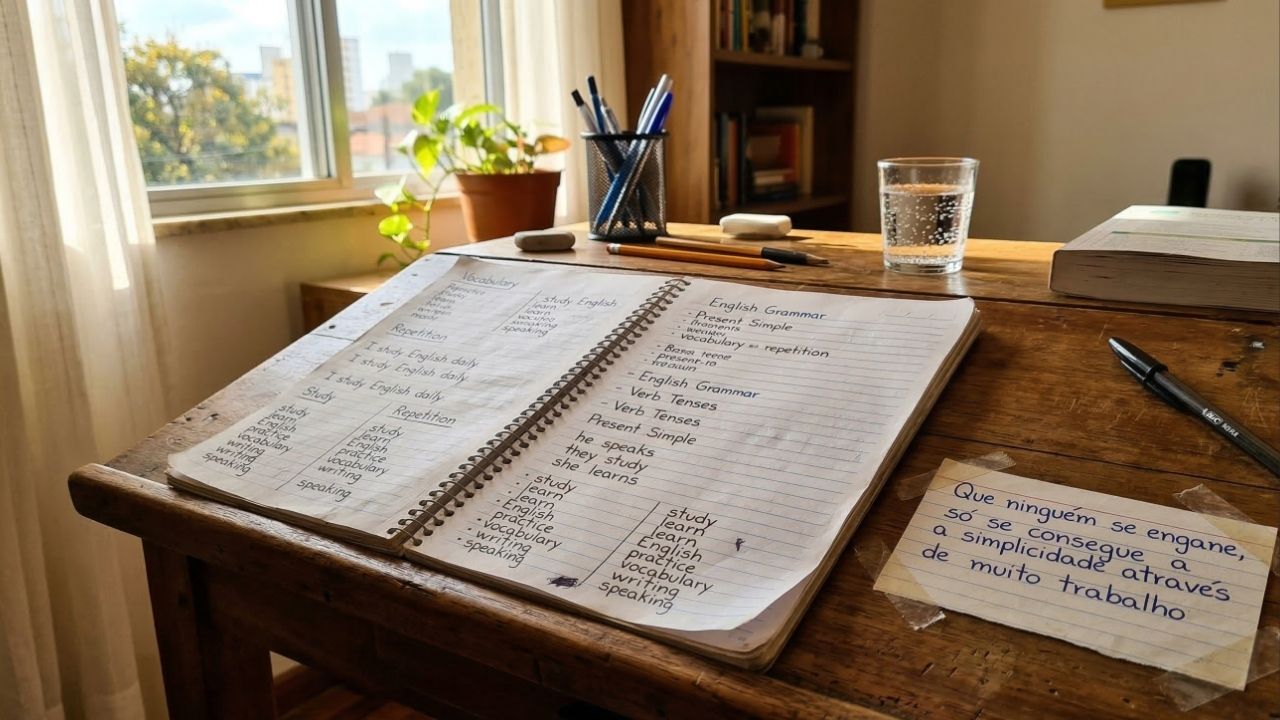 Vocabulary
study English
learn
learn
speaking
Repetition
I study English daily
I study English daily
I study English daily
Study
study
learn
English
practice
vocabulary
writing
speaking
Repetition
study
learn
English
practice
vocabulary
writing
speaking
English Grammar
- Present Simple
vocabulary = repetition
- English Grammar
- Verb Tenses
- Verb Tenses
Present Simple
he speaks
they study
she learns
· study
· learn
· English
practice
· vocabulary
· writing
· speaking
study
learn
learn
English
practice
vocabulary
writing
speaking
Que ninguém se engane,
só se consegue a
a simplicidade através
de muito trabalho